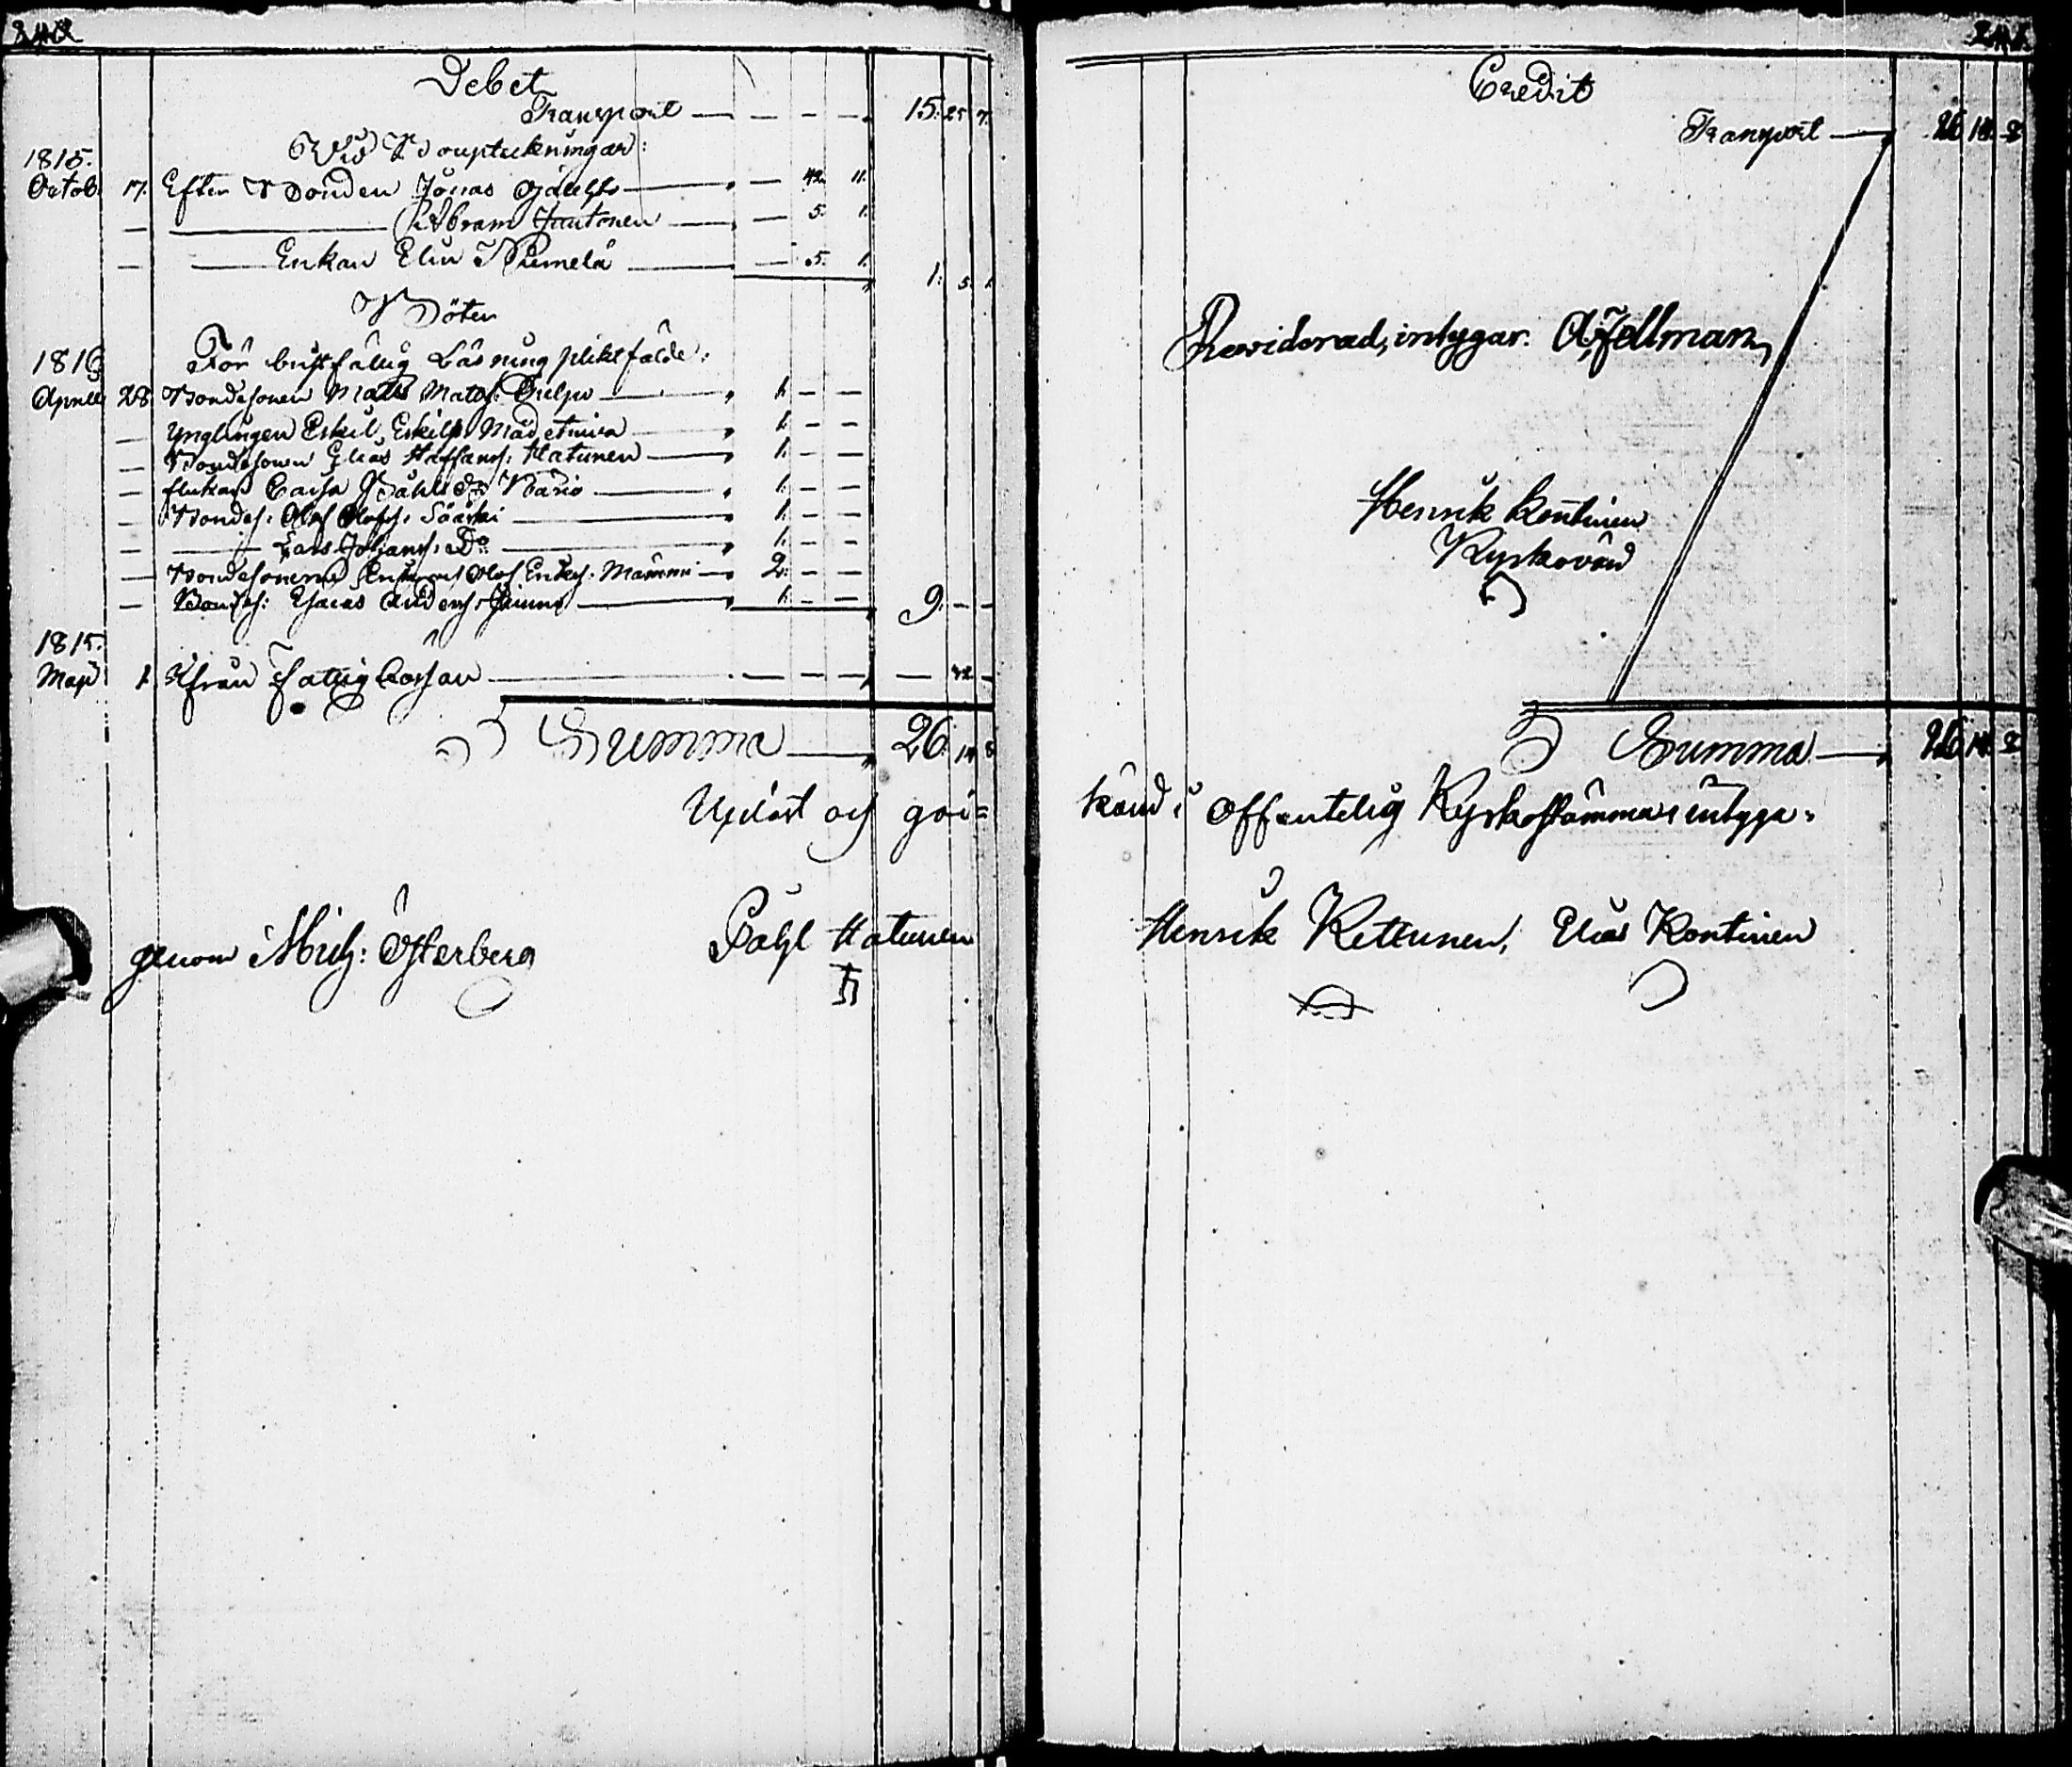 Debet
Transport — — — — 15. 25 7.
Wid Bouptekningar:
1815.
Octob. 17. Efter Bonden Jonas — 42. 11.
— Abram Jantonen — 5. 1.
— Enkan Elin Niemelä — 5. 1. 1: 5. 1.
Böter
För bristfällig Läsning pliktfälde:
1816
Aprill 28 Bondesonen Matts Matss. — 1. — —
— Ynglingen Eskil Eskilss. Mädetniva — 1. — —
— Bondesonen Elias Staffanss. Hatunen — 1. — —
— Flickan Caisa Påhls dr — 1. — —
— Bondes. Olof Olofss. Sääski — 1. — —
— Lars Johanss. Do — 1. — —
— Bondesönerne och Olof — 2. — —
— Bondes: Esaias Anderss. — 1. — — 9. — —
1815.
Maji 1. Ifrån Fattig Cassan — — — — — 32 —
Summa — 26. 14 8
Upläst och god=
genom Mich: Österberg Påhl Hatunen
Credit
Transport — 26 14. 8
Reviderad, intygar. A, Fellman
Henrik Kontinen
Kyrkovärd
Summa — 26 14. 8
känd i Offentelig Kyrkostämma; intyga:
Henrik Kettunen, Elias Kontinen